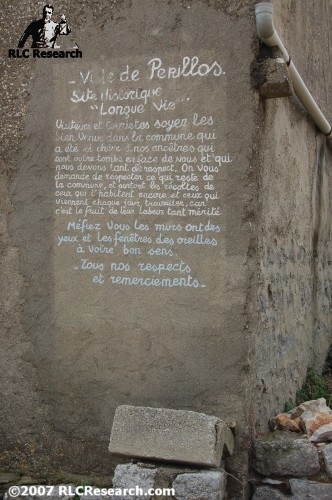 RLC Research
- Ville de Périllos.
Site Historique
"Longue Vie"
Visiteurs et Touristes soyez les
bien Venus dans la commune qui
a été si chère à nos ancêtres qui
sont votre tombe en face de Vous et qui
nous devons tant de respect. On Vous
demande de respecter ce qui reste de
la commune, et surtout les récoltes de
ceux qui l'habitent encore et ceux qui
viennent chaque jour, travailler, car
c'est le fruit de leur labeur tant mérité
Méfiez Vous les murs ont des
yeux et les fenêtres des oreilles
à Votre bon sens.
- Tous nos respects
et remerciements -
©2007 RLCResearch.com